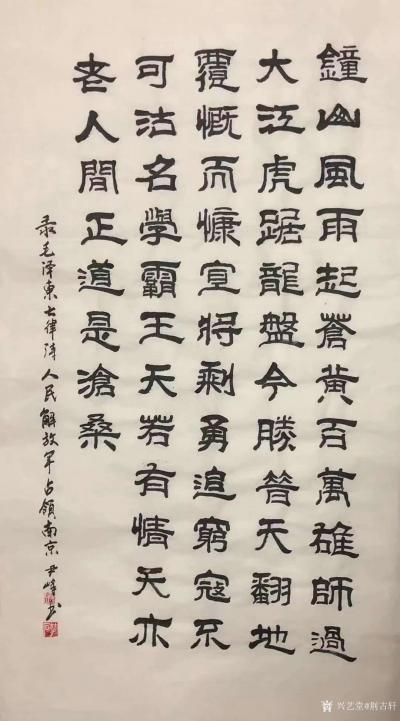 鐘山風雨起蒼黃百萬雄師過
大江虎踞龍盤今勝昔天翻地
覆慨而慷宜將剩勇追窮寇不
可沽名學霸王天若有情天亦
老人間正道是滄桑
录毛泽東七律诗人民解放军占领南京 尹峰书
兴艺堂@荆古轩